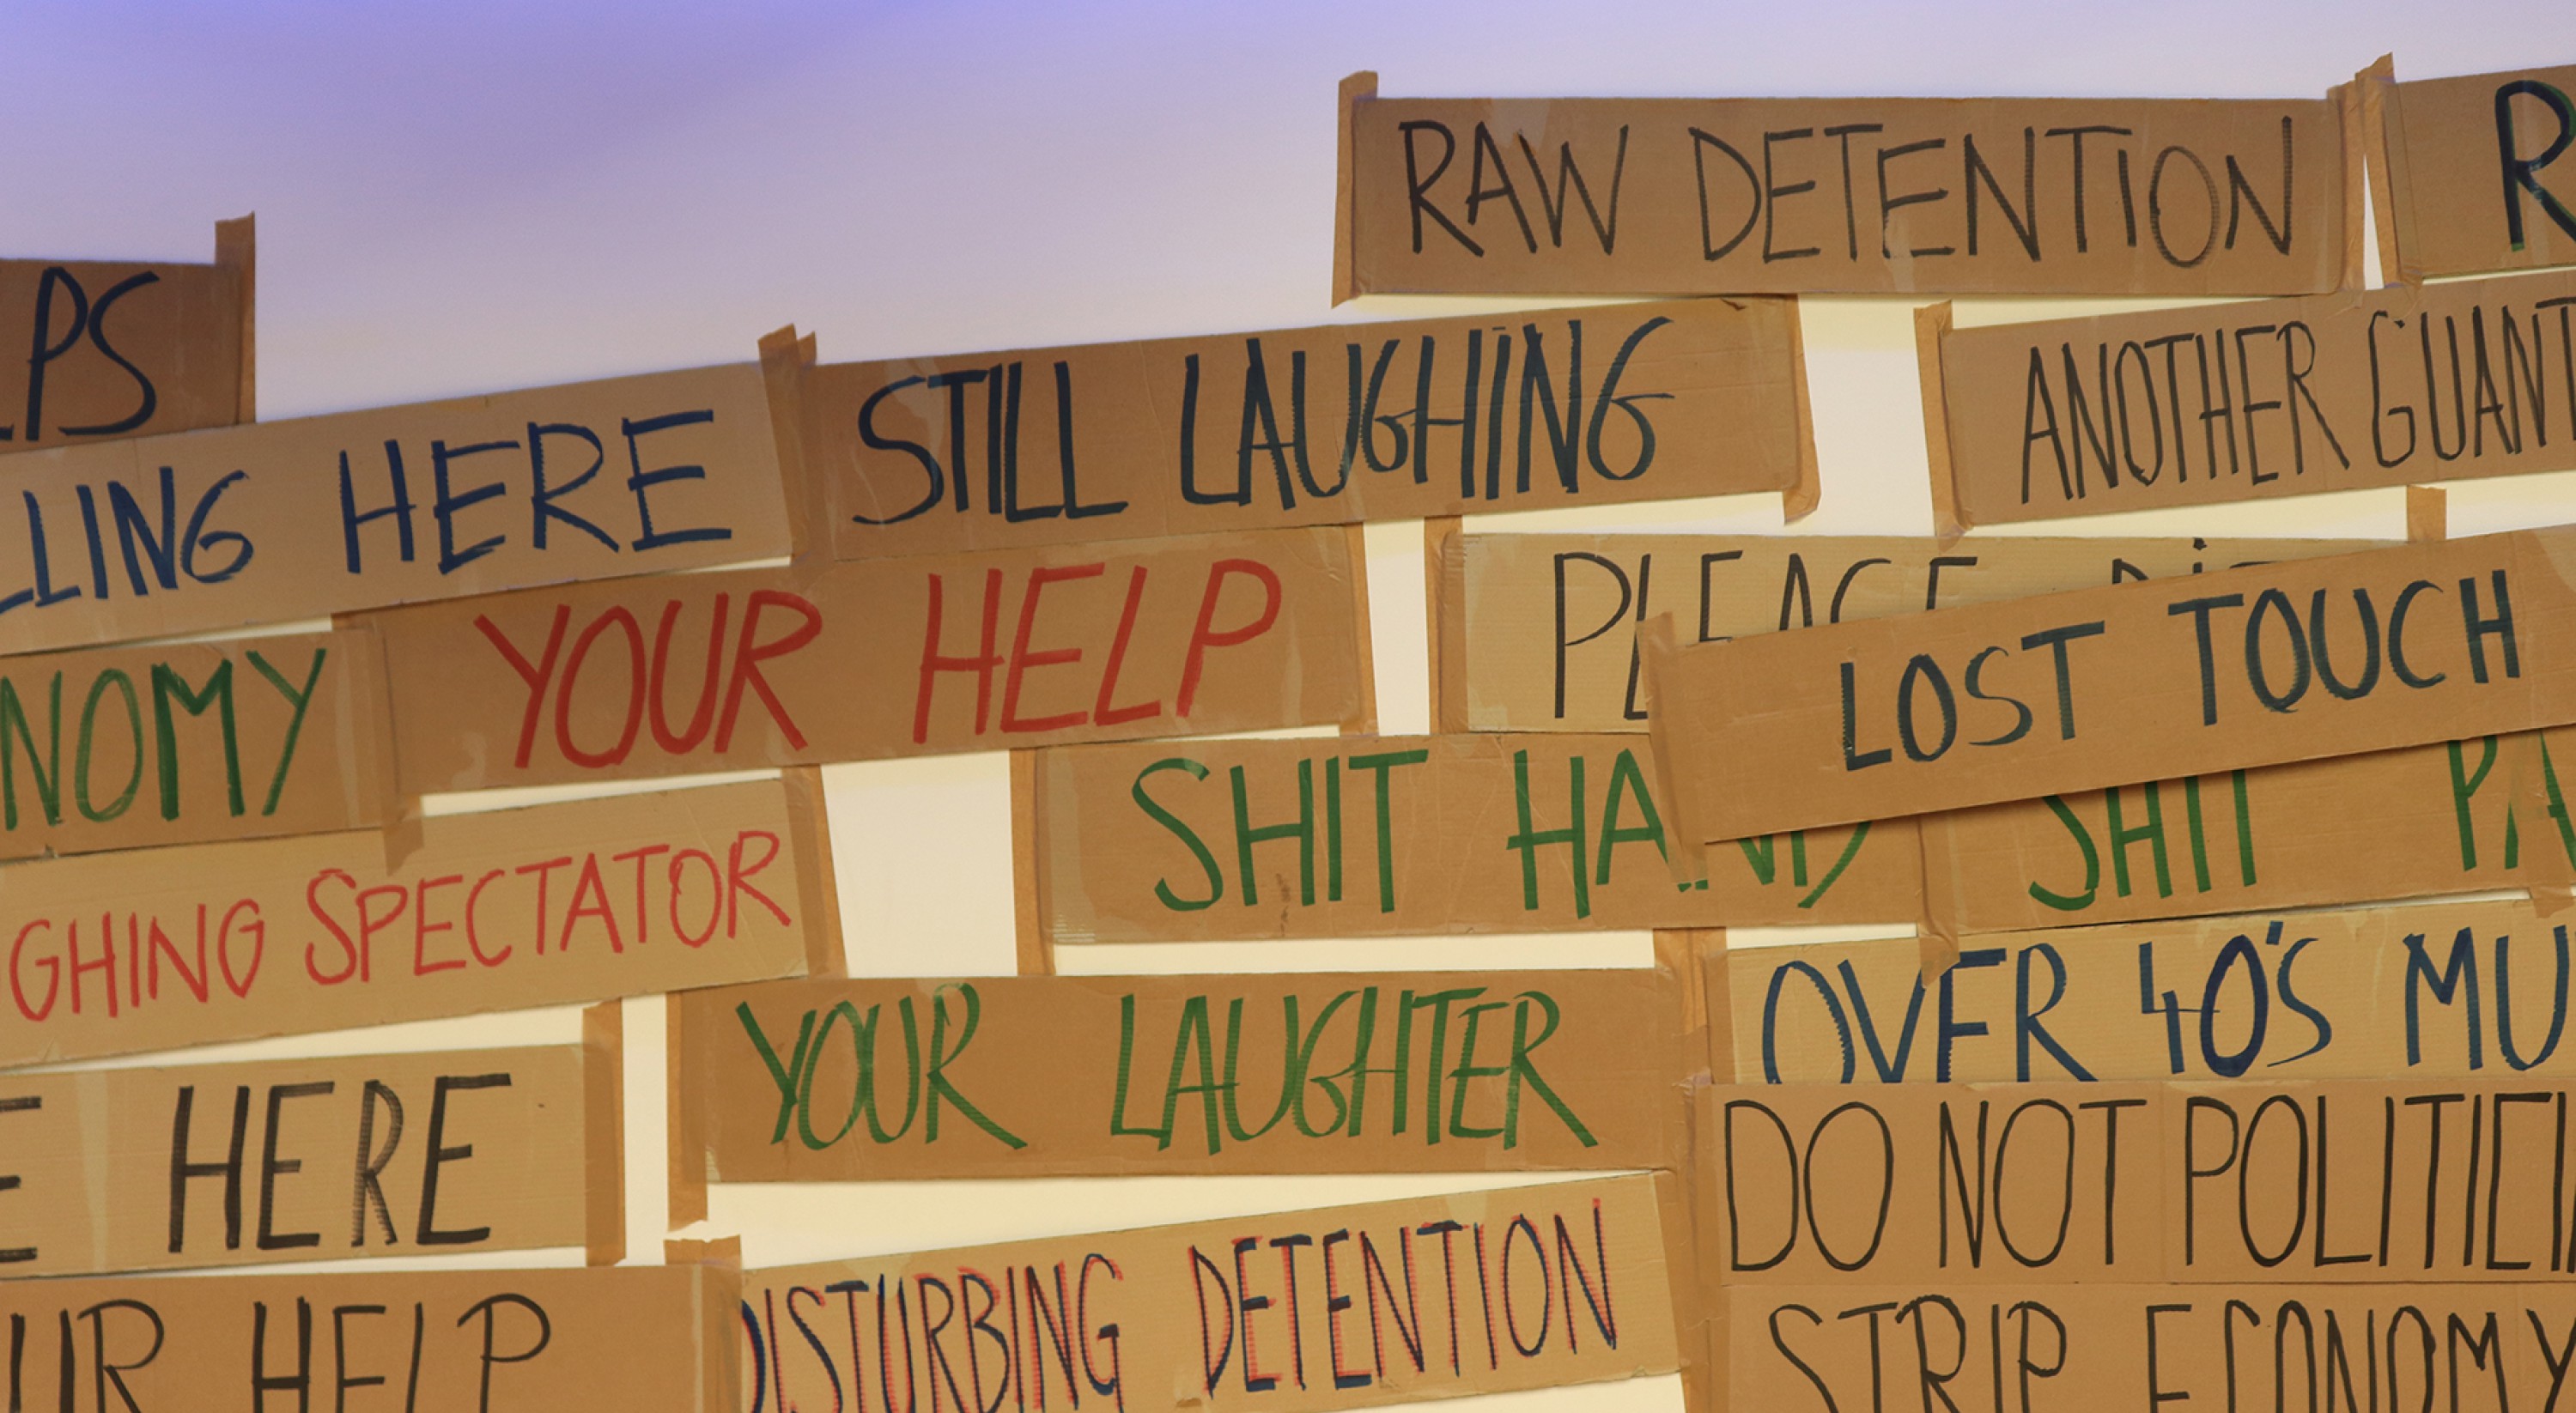 RAW DETENTION
R
PS
LLING HERE
STILL LAUGHING
ANOTHER GUANT
NOMY
YOUR HELP
PLEASE
LOST TOUCH
GHING SPECTATOR
SHIT HAND
SHIT PA
OVER 40'S MU
E HERE
YOUR LAUGHTER
DO NOT POLITICI
UR HELP
DISTURBING DETENTION
STRIP ECONOMY